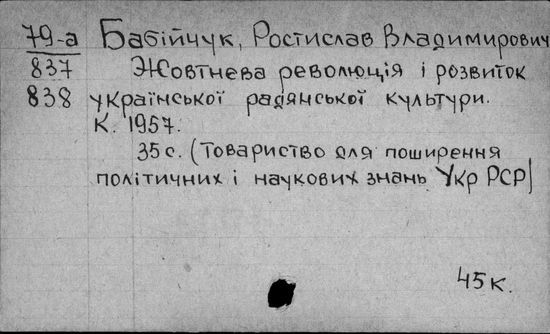 79-а Бабійчук, Ростислав Владимирович
837 Жовтнева революція і розвиток
838 української радянської культури.
К. 1957.
35 с. (Товариство для поширення
політичних і наукових знань Укр РСР)
45к.